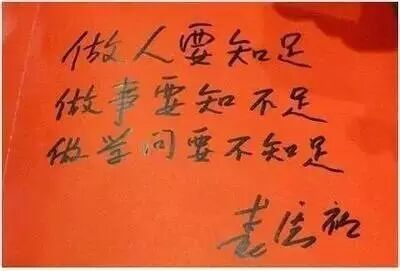 做人要知足
做事要知不足
做学问要不知足